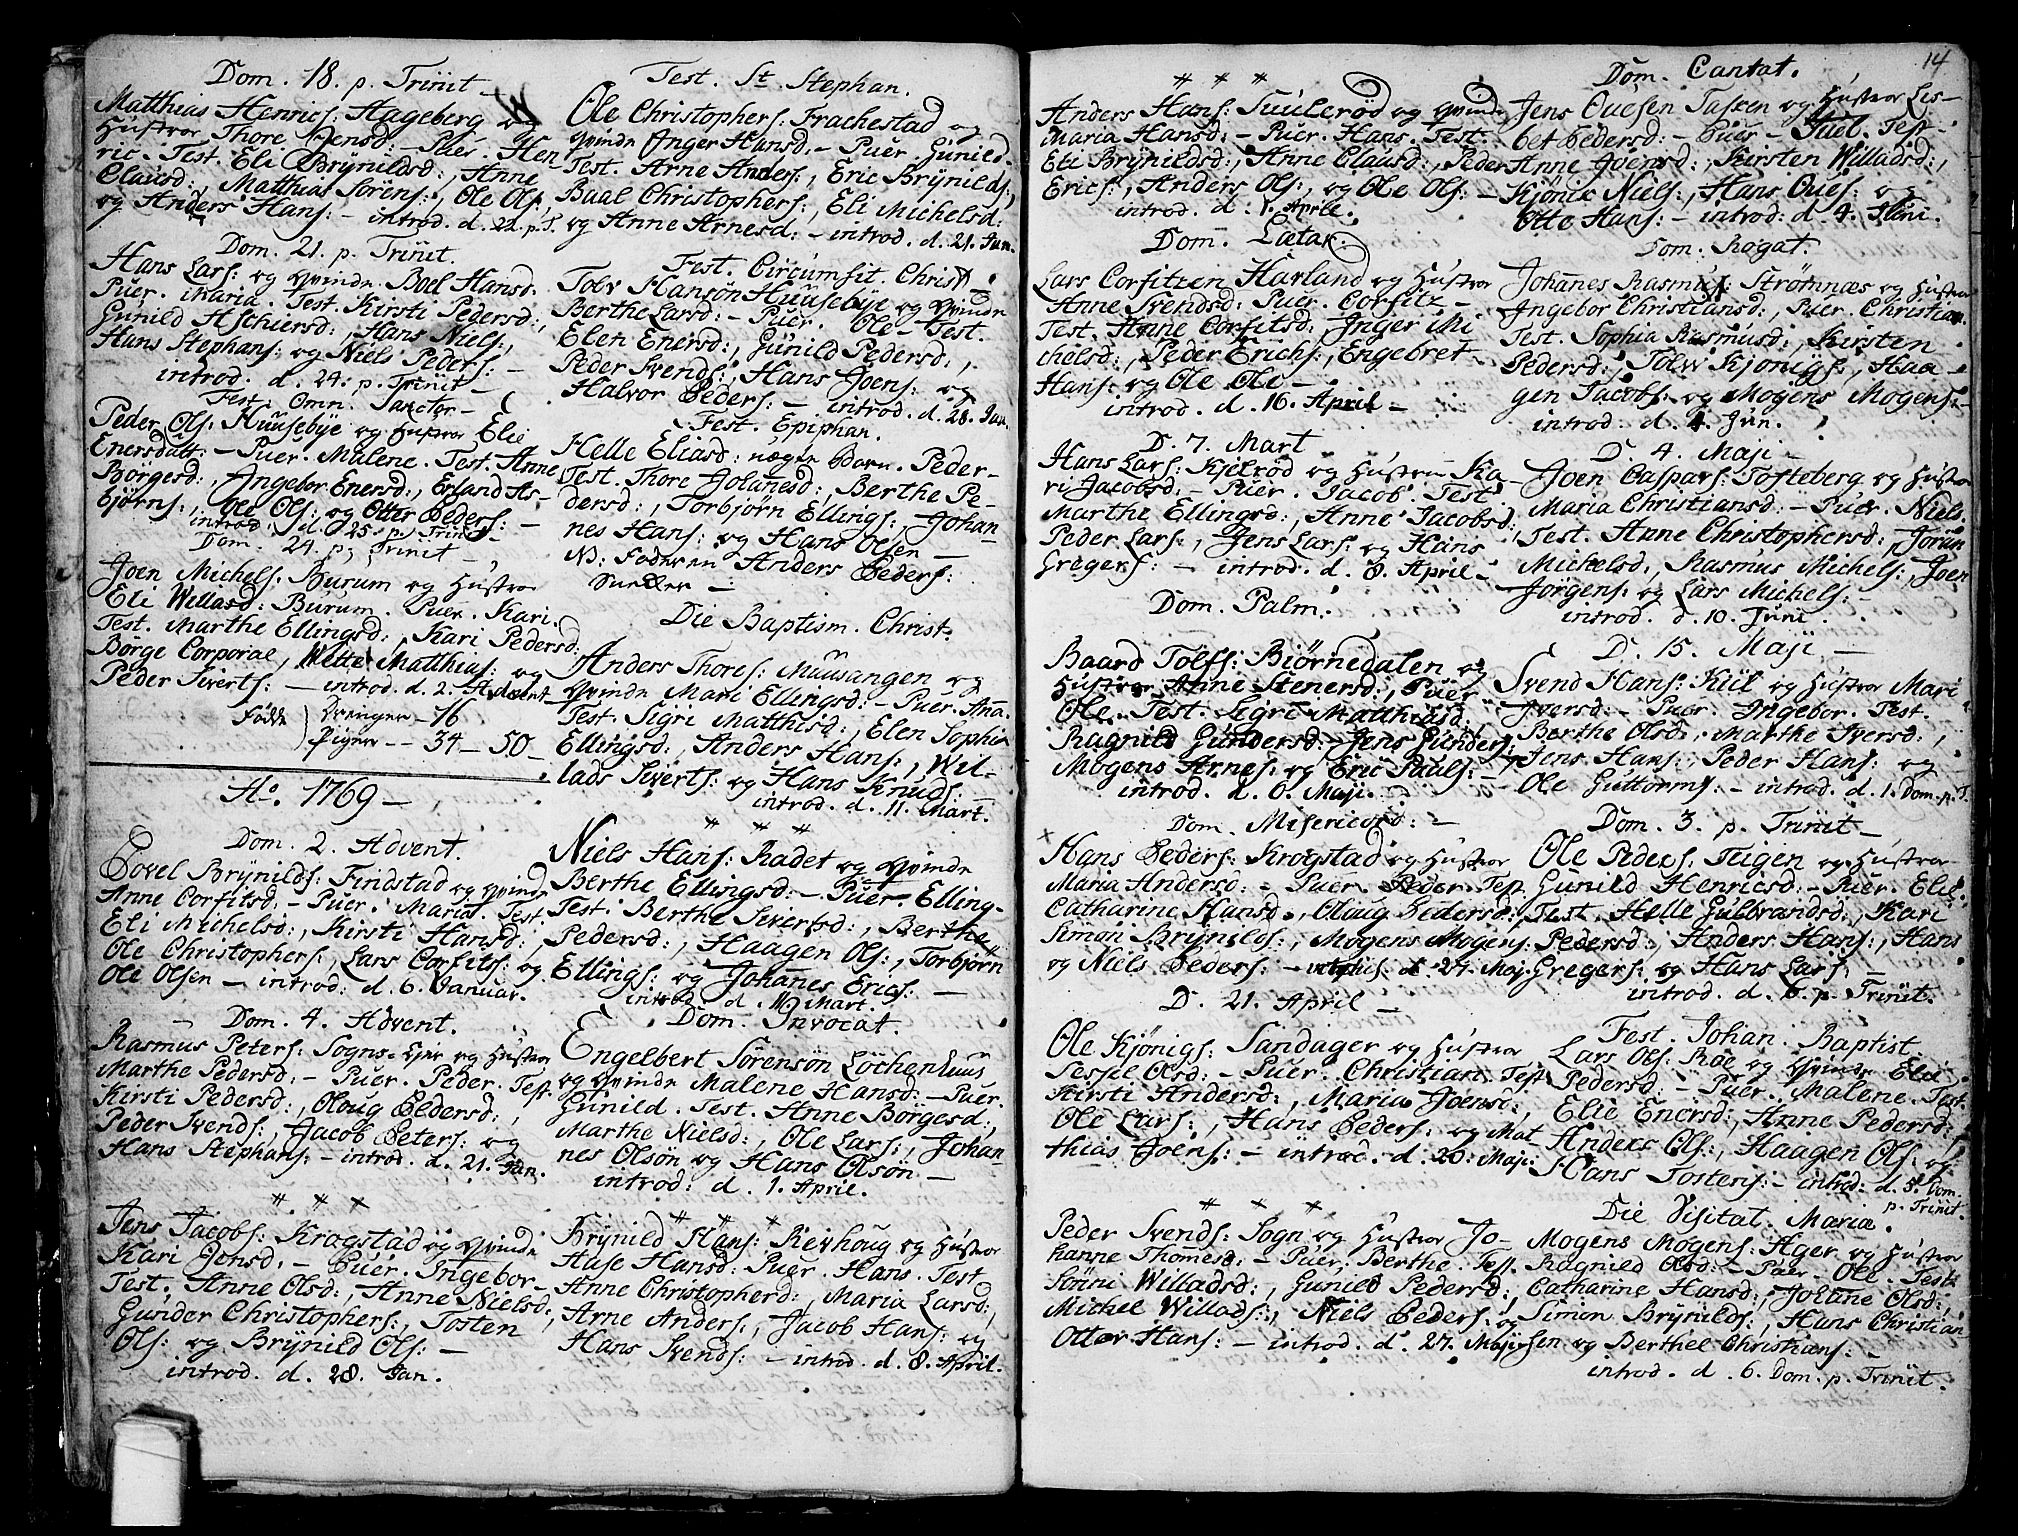 Dom. 18. p. Trinit
Matthias Henrics: Hageberg og
Hustroe Thore Jensd: - Puer. Hen
ric. Test. Eli Brÿnildsd:, Anne
Clausd:, Matthias Sörens:, Ole Ols:
og Anders Hans: - introd. d. 22. p. T.
Dom. 21. p. Trinit.
Hans Lars: og Qvinde Boel Hansd.
Puer. Maria. Test. Kirsti Pedersd:,
Gunild Aschiersd:, Hans Niels:,
Hans Stephans: og Niels Peders: -
introd. d. 24. p. Trinit -
Fest: Omn. Sanctor -
Peder Ols: Huusebÿe og Hustroe Elie
Enersdatt: - Puer. Malene. Test. Anne
Börgesd:, Ingebor Enersd:, Erland As-
björns:, Ole Ols: og Otter Peders: -
introd: d. 25. p. Trinit -
Dom. 24. p. Trinit -
Joen Michels: Burum og Hustroe
Eli Willasd: Burum. Puer. Kari.
Test. Marthe Ellingsd:, Kari Pedersd:
Börge Corporal, Wette Matthias: og
Peder Siverts: - introd. d. 2. Advent
Födde Drenger - 16
Piger -- 34 - 50 -
Ao. 1769 -
Dom. 2. Advent.
Eovel Brÿnilds: Findstad og Qvinde
Anne Corfitsd: - Puer. Maria. Test.
Eli Michelsd:, Kirsti Hansd:,
Ole Christophers:, Lars Corfits: og
Ole Olsen - introd: d. 6. Januar.
Dom. 4. Advent.
Rasmus Peters: Sogn og Hustroe
Marthe Pedersd: - Puer. Peder. Test.
Kirsti Pedersd:, Oloug Pedersd:,
Peder Svends:, Jacob Peters: og
Hans Stephans: - introd. d. 21. Jan.
* * *
Jens Jacobs: Krogstad og Qvinde
Kari Jonsd. - Puer. Ingebor
Test. Anne Olsd:, Anne Nielsd:,
Gunder Christophers:, Tosten
Ols: og Brÿnild Ols: -
introd. d. 28. Jan.
Fest. St. Stephan.
Ole Christophers: Frachestad og
Qvinde Inger Hansd: - Puer. Gunild -
Test. Arne Anders:, Eric Brÿnilds:,
Baal Christophers:, Eli Michelsd:
og Anne Arnesd: - introd. d. 21. Jan.
Fest. Circumsit. Christ.
Tolv Hansön Huusebÿe og Qvinde
Berthe Larsd: - Puer. Ole - Test.
Elen Enersd:, Gunild Pedersd:,
Peder Svends:, Hans Joens: og
Halvor Peders: - introd. d. 28. Jan.
Fest. Epiphan.
Helle Eliasd: uægte Barn. Peder -
Test. Thore Johanesd:, Berthe Pe-
dersd:, Torbjörn Ellings:, Johan
nes Hans: og Hans Olsen -
NB: Faderen Anders Peders:
Die Baptism. Christ.
Anders Thores: Muusangen og
Qvinde Mari Ellingsd: - Puer. Ana.
Test. Sigri Matthisd:, Elen Sophia
Ellingsd:, Anders Hans:, Wil-
lads Siverts: og Hans Knuds:
introd. d. 11. Mart.
* * *
Niels Hans: Radet og Qvinde
Berthe Ellingsd: - Puer. Elling -
Test. Berthe Siversd:, Berthe
Pedersd:, Haagen Ols:, Torbjörn
Ellings: og Johanes Erics: -
introd. d. 11. Mart.
Dom. Invocat.
Engelbert Sörensön Löchenhuus
og Qvinde Malene Hansd: - Puer.
Gunild. Test. Anne Börgesd:,
Marthe Nielsd:, Ole Lars:, Johan
nes Olsön og Hans Olsön -
introd: d. 1. April.
* * *
Brÿnild Hans: Revhoug og Hustroe
Huse Hansd: Puer. Hans. Test
Anne Christopherd:, Maria Larsd:,
Arne Anders:, Jacob Hans: og
Hans Svends: - introd. d. 8. April.
* * *
Anders Hans: Tuulerød og Qvinde
Maria Hansd: - Puer. Hans. Test.
Eli Brÿnildsd:, Anne Clausd:, Peder
Erics:, Anders Ols:, og Ole Ols: -
introd. d. 1. Aprle.
Dom. Lætar.
Lars Corfitzen Harland og Hustroe
Anne Svendsd: Puer. Corfitz -
Test. Anne Corfitsd: Inger Mi
chelsd:, Peder Erichs:, Engebret
Hans: og Ole Ole -
introd. d. 16. April -
D. 7. Mart
Hans Lars: Kjelröd og Hustru Ka-
ri Jacobsd: - Puer. Jacob. Test
Marthe Ellingsd:, Anne Jacobsd:,
Peder Lars:, Jens Lars: og Hans
Gregers: - introd. d. 8. April -
Dom. Palm.
Baard Tolfs: Biørnedalen og
Hustroe Anne Stenersd:, Puer
Ole. Test. Sigri Matthiasd:,
Ragnild Gundersd: Jens Gunders:
Mogens Arnes: og Eric Pauls: -
introd. d. 6. Maji.
Dom. Misericord: -
Hans Peders: Krogstad og Hustroe
Maria Andersd: - Puer. Peder. Test.
Catharine Hansd., Oloug Pedersd.,
Simon Brÿnilds:, Mogens Mogens:
og Niels Peders: - d. 27. Maj.
D. 21. April -
Ole Kjönigs: Sandager og Hustroe
Sessel Olsd: - Puer. Christian. Test
Kirsti Andersd:, Maria Joensd:,
Ole Lars:, Hans Peders: og Mat
thias Joens: - introd. d. 20. Maji:
* * *
Peder Svends: Sogn og Hustroe Jo-
hanne Thomesd: - Puer. Berthe. Test.
Söni Willadsd:, Gunild Pedersd:,
Michel Willads:, Niels Peders: og
Otter Hans: - introd: d. 27. Maji
14
Dom. Cantat.
Jens Ouesen Tasken og Hustroe Lis-
bet Pedersd: - Puer - Juel. Test -
Anne Joensd:, Kirsten Willadsd:,
Kjönix Niels:, Hans Oues: og
Otte Hans: - introd: d. 4. Juni.
Dom. Rogat.
Johanes Rasmus: Strömnæs og Hustroe
Ingebor Christiansd:, Puer. Christian.
Test. Sophia Rasmusd:, Kirsten
Pedersd:, Tolw Kjonigs:, Haa-
gen Jacobs: og Mogens Mogens: -
introd. d. 4. Jun.
D. 4. Maji -
Joen Caspars: Tofteberg og Hustroe
Maria Christiansd: - Puer. Niels.
Test. Anne Christophersd:, Joran
Michelsd:, Rasmus Michels:, Joen
Jörgens: og Lars Michels: -
introd. d. 10. Juni.
D. 15. Maji -
Svend Hans: Kiil og Hustroe Mari
Iversd: - Puer. Ingebor. Test.
Berthe Olsd:, Marthe Iversd:,
Jens Hans:, Peder Hans: og
Ole Guttorms: - introd: d. 1. Dom. p. T.
Dom. 3. p. Trinit -
Ole Peders: Teigen og Hustroe
Gunild Henricsd: - Puer. Elie.
Test. Helle Gulbrandsd:, Kari
Pedersd:, Anders Hans:, Hans
Gregers: og Hans Lars: -
introd. d. 6. p. Trinit.
Fest. Johan. Baptist.
Lars Ols: Röe og Qvinde Elie
Pedersd: - Puer. Malene. Test.
Elie Enersd:, Anne Pedersd:,
Anders Ols:, Haagen Ols: og
Hans Tostens: - introd: d. 5. Dom.
p. Trinit.
Die Visitat. Mariæ.
Mogens Mogens: Ager og Hustroe
Ragnild Olsd: - Puer - Ole. Test:
Catharine Hansd:, Johane Olsd:,
Simon Brÿnilds:, Hans Christian
sen og Berthel Christians: -
introd. d. 6. Dom. p. Trinit.